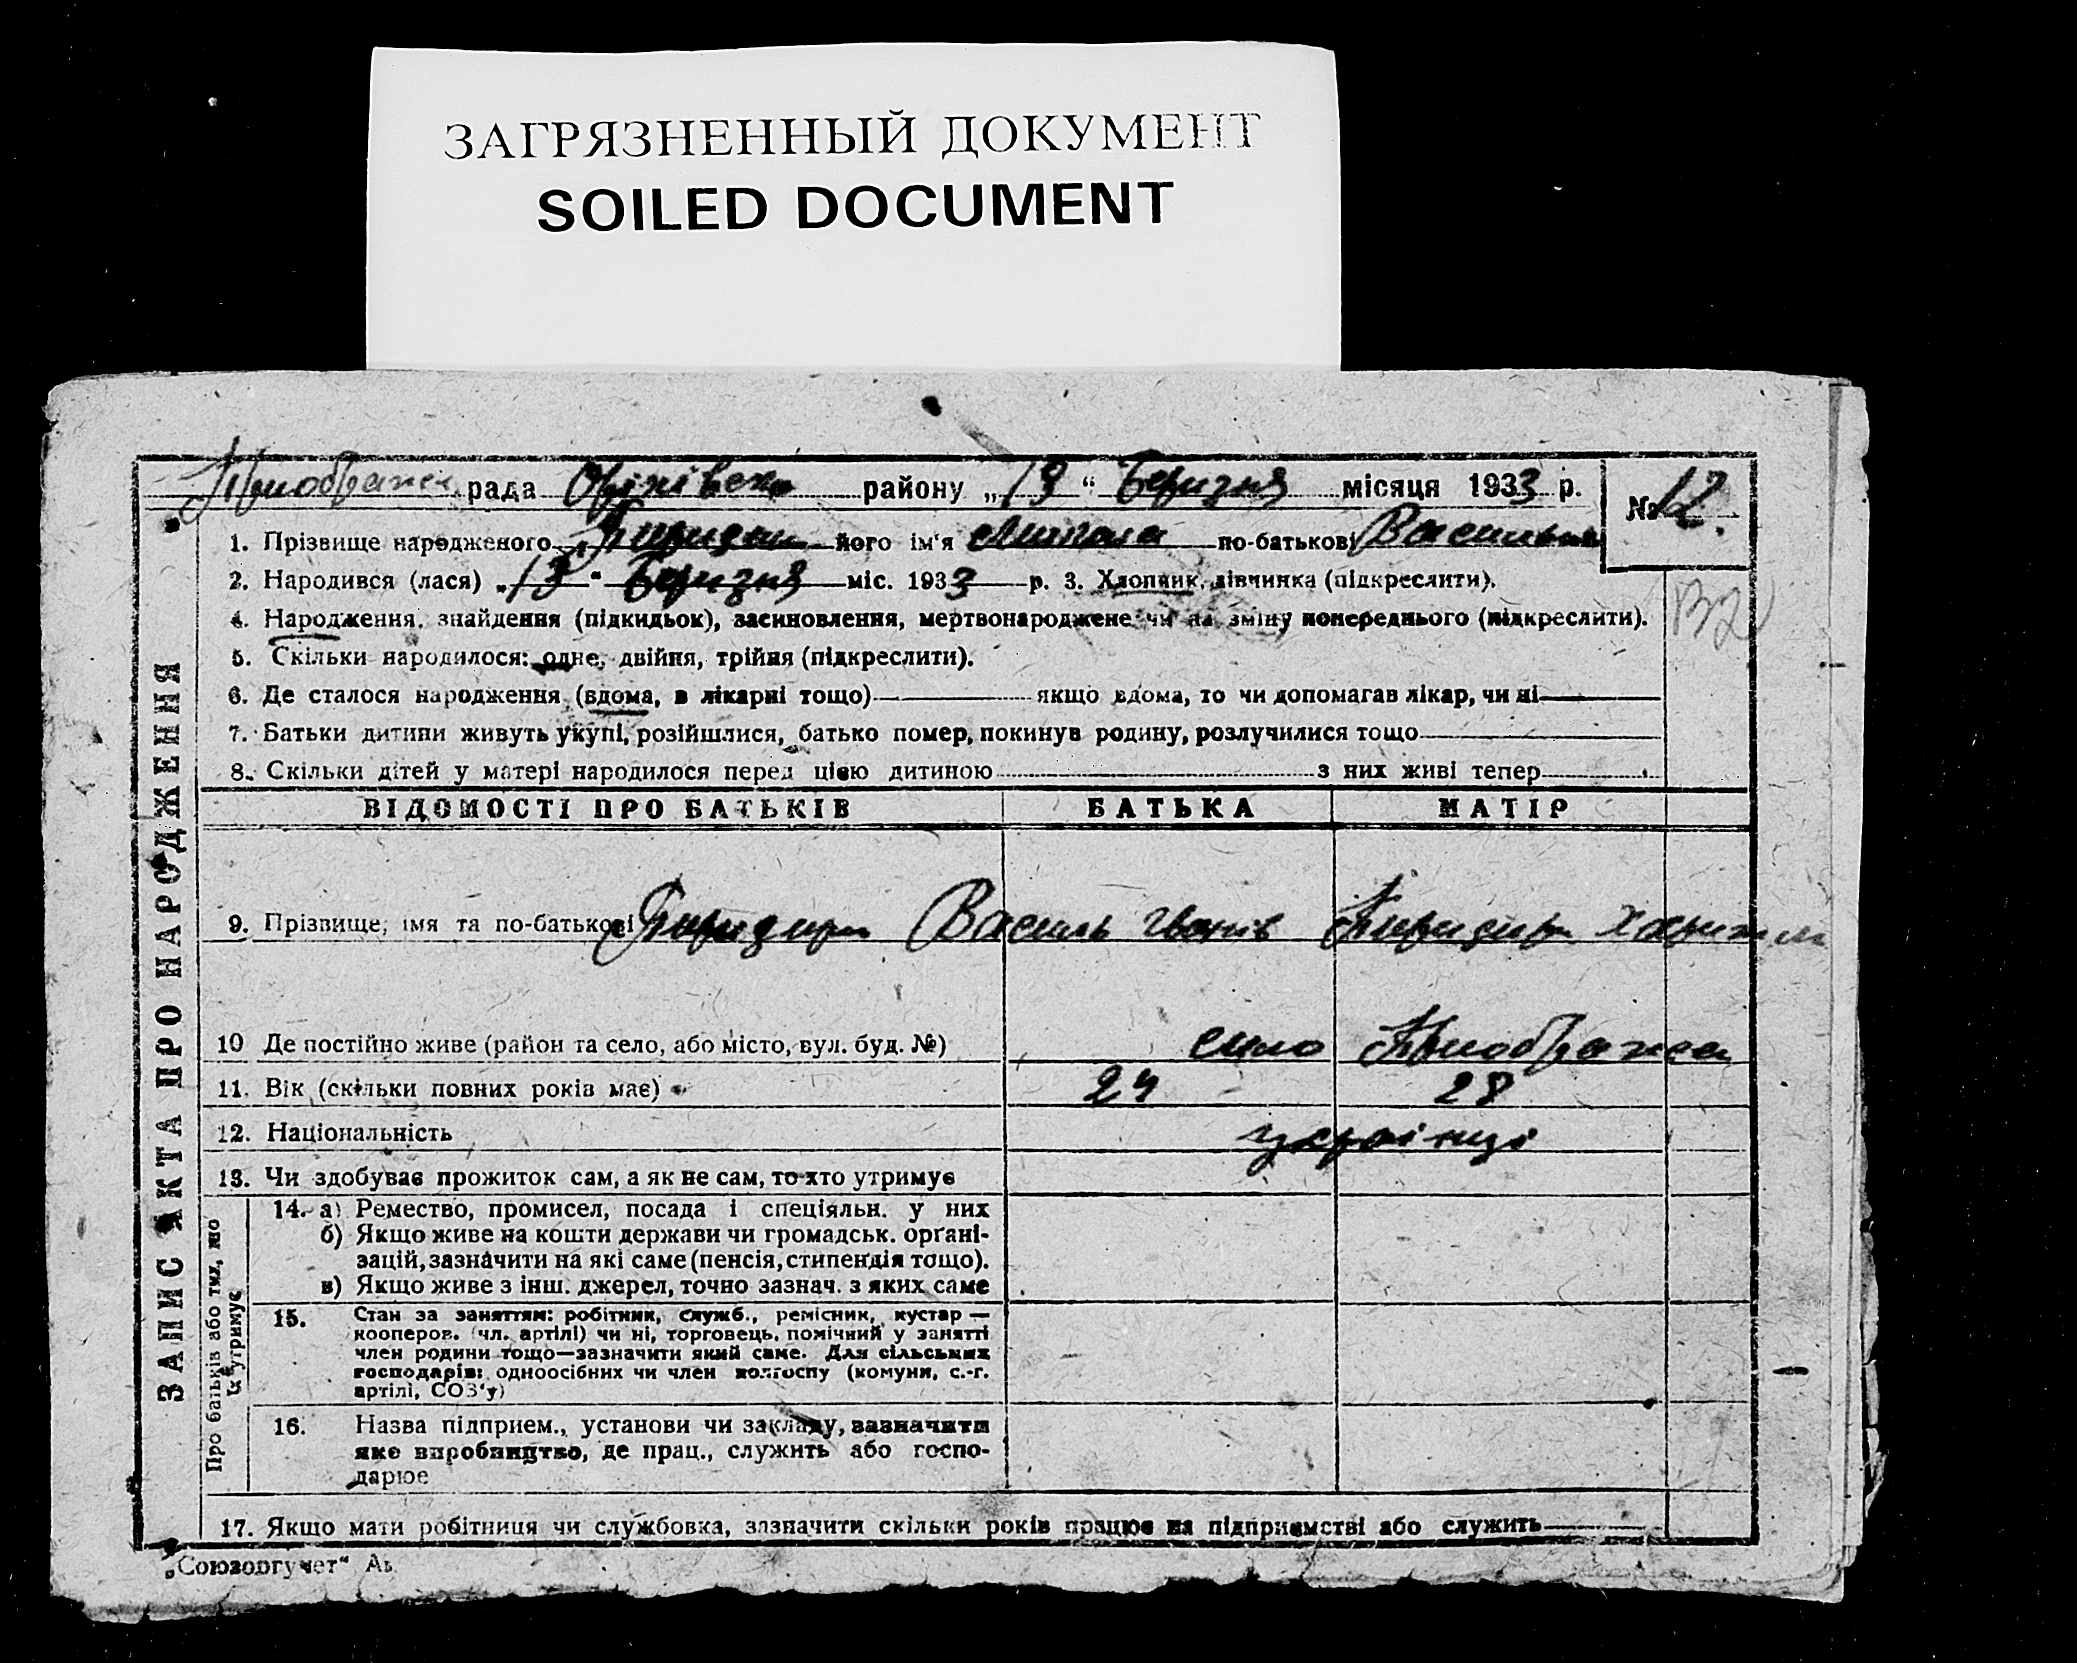 ЗАГРЯЗНЕННЫЙ ДОКУМЕНТ
SOILED DOCUMENT
рада району „13“ Березня місяця 1933 р. № 12.
1. Прізвище народженого його ім'я Микола по-батькові
2. Народився (лася) „13“ Березня міс. 1933 р. 3. Хлопчик, дівчинка (підкреслити).
4. Народження, знайдення (підкидьок), засиновлення, мертвонароджене чи на зміну попереднього (підкреслити).
5. Скільки народилося: одне, двійня, трійня (підкреслити).
6. Де сталося народження (вдома, в лікарні тощо) якщо вдома, то чи допомагав лікар, чи ні
7. Батьки дитини живуть укупі, розійшлися, батько помер, покинув родину, розлучилися тощо
8. Скільки дітей у матері народилося перед цією дитиною з них живі тепер
ВІДОМОСТІ ПРО БАТЬКІВ БАТЬКА МАТІР
9. Прізвище, імя та по-батькові Василь Іванів
10 Де постійно живе (район та село, або місто, вул. буд. №) село
11. Вік (скільки повних років має) 24 28
12. Національність українці
13. Чи здобуває прожиток сам, а як не сам, то хто утримує
14. а) Ремество, промисел, посада і спеціяльн. у них
б) Якщо живе на кошти держави чи громадськ. орґані-
зацій, зазначити на які саме (пенсія, стипендія тощо).
в) Якщо живе з інш. джерел, точно зазнач. з яких саме
15. Стан за заняттям: робітник, служб., ремісник, кустар —
кооперов. (чл. артілі) чи ні, торговець, помічний у занятті
член родини тощо—зазначити який саме. Для сільських
господарів: одноосібних чи член колгоспу (комуни, с.-г.
артілі, СОЗ'у)
16. Назва підприєм., установи чи закладу, зазначити
яке виробництво, де прац., служить або госпо-
дарює
17. Якщо мати робітниця чи службовка, зазначити скільки років працює на підприємстві або служить
„Союзоргучет“
ЗАПИС АКТА ПРО НАРОДЖЕННЯ
Про батьків або тих, що
їх утримує